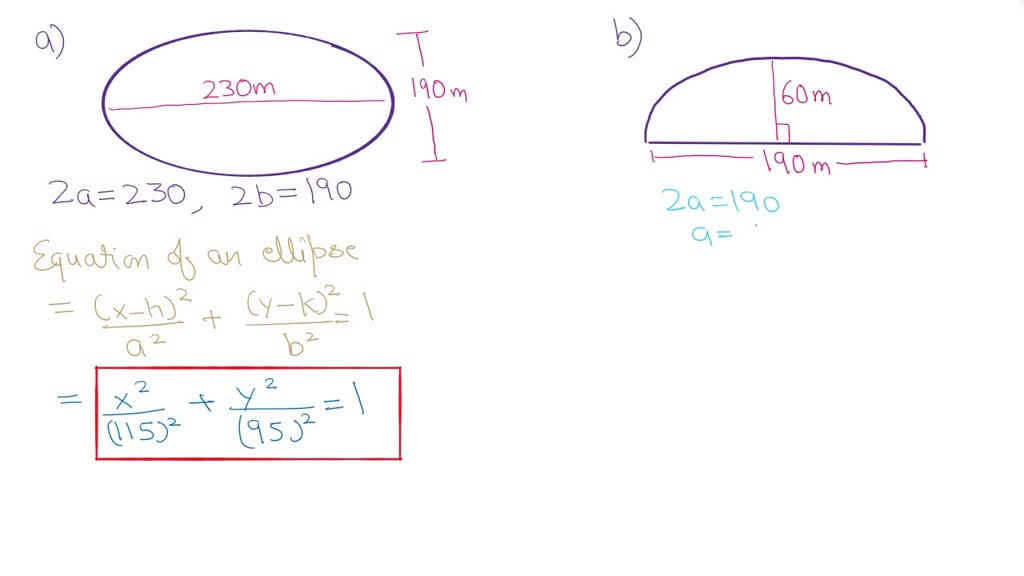 a)
230m
190m
2a=230, 2b=190
Equation of an ellipse
= (x-h)²/a² + (y-k)²/b² = 1
= x²/(115)² + y²/(95)² = 1
b)
60m
190m
2a=190
a=